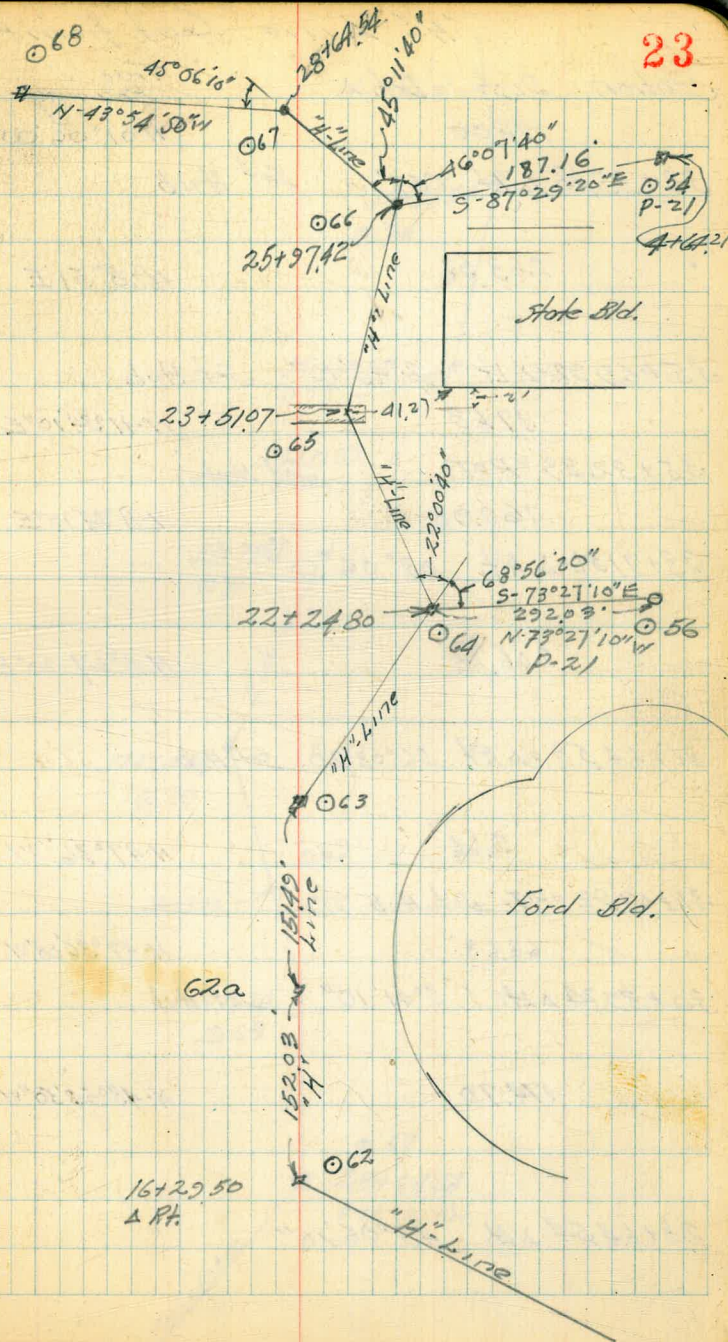 23
68
45°06'10"
28+64.54
45°11'40"
N-43°54'50"W
67
"H"-Line
46°07'40"
187.16'
S-87°29'20"E
54
P-21
4+64.21
66
25+97.42
"H"-Line
State Bld.
23+51.07
41.27
65
"H"-Line
22°00'40"
68°56'20"
S-73°27'10"E
22+24.80
292.03'
64
N-73°27'10"W
56
P-21
"H"-Line
63
151.49'
Line
Ford Bld.
62a
152.03'
"H"
62
16+29.50
Δ Rt.
"H"-Line